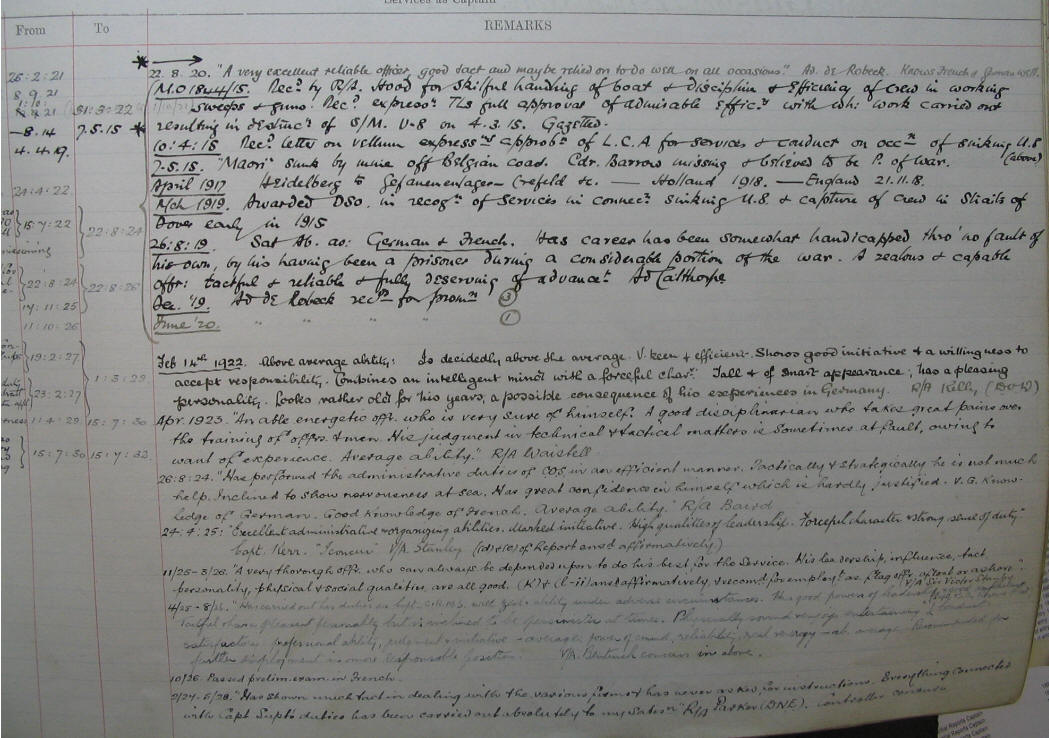 Services as Captain
REMARKS
From To
22.8.20. "A very excellent reliable officer, good tact and may be relied on to do well on all occasions". Ad. de Robeck. Knows French & German well.
(M.01844/15. Recd by R/A. Hood for skilful handling of boat & discipline & efficiency of crew in working
sweeps & guns. Recd expressn The full approval of admirable Efficy with whi: work carried out
resulting in destructn of S/M. U-8 on 4.3.15. Gazetted.
10:4:15 Recd letter on vellum express approbn of L.C.A for services & conduct on occn of sinking U.8
7.5.15. "Maori" sunk by mine off Belgian coast. Cdr. Barrow missing & believed to be P. of War. (above)
April 1917 Heidelberg to Crefeld &c. — Holland 1918. — England 21.11.18.
Mch 1919. Awarded DSO. in recogn of Services in connecn sinking U.8. & capture of Crew in Straits of
Dover early in 1915
26:8:19 Sat Ab. as: German & French. Has career has been somewhat handicapped thro' no fault of
his own, by his having been a prisoner during a considerable portion of the war. A zealous & capable
offr: tactful & reliable & fully deserving of advanct Ad Calthorpe
Dec. '19. Ad de Robeck recd for promn (3)
June '20. " " " " (1)
Feb 14th 1922. Above average ability: Is decidedly above the average. V. keen & efficient. Shows good initiative & a willingness to
accept responsibility. Combines an intelligent mind with a forceful charr. Tall & of smart appearance, has a pleasing
personality. Looks rather old for his years, a possible consequence of his experiences in Germany. R/A Kelly,
Apr. 1923 "An able energetic offr. who is very sure of himself. A good disciplinarian who takes great pains over
the training of offrs & men. His judgment in technical & tactical matters is sometimes at fault, owing to
want of experience. Average ability." R/A Waistell
26:8:24. "Has performed the administrative duties of COS in an efficient manner. Tactically & strategically he is not much
help. Inclined to show nervousness at sea. Has great confidence in himself which is hardly justified. V.G. Know-
ledge of German. Good knowledge of French. Average ability." R/A Baird
24.4.25: "Excellent administrative & organizing abilities. Marked initiative. High qualities of leadership. Forceful character & strong sense of duty"
Capt. Kerr. V/A. Stanley of Report ansd affirmatively)
11/25-3/26. "A very thorough offr. who can always be depended upon to do his best for the Service. His leadership, influence, tact
personality, physical & social qualities, are all good. ansd affirmatively, & recomd for employt as Flag offr. afloat or ashore". V/A Sir Victor Stanley
4/25-8/26. "Has carried out his duties as Capt. well. Zeal & ability under adverse circumstances. Has good power of leadership
Tactful & has a pleasant personality but is inclined to be pessimistic at times. Physically sound
satisfactory professional ability, judgment & initiative - average; power of mind, reliability, zeal energy - ab. average. Recommended for
further employment in more responsible position." V/A. Bentinck concurs in above.
10/26. Passed prelim. exam in French.
2/27-5/28. "Has shown much tact in dealing with the various firms & has never asked for instructions. Everything connected
with Capt Supts duties has been carried out absolutely to my Satisn" R/A Parker (DNE). Controller concurs
25:2:21
8 9 21
31:3:22
-8.14 7.5.15
4.4.19.
24:4:22.
15:7:22 22:8:24
22:8:24 22:8:26
17:11:25
11:10:26
19:2:27
1:3:29
23:2:27
1:4:29 15:7:30
15:7:30 15:7:32